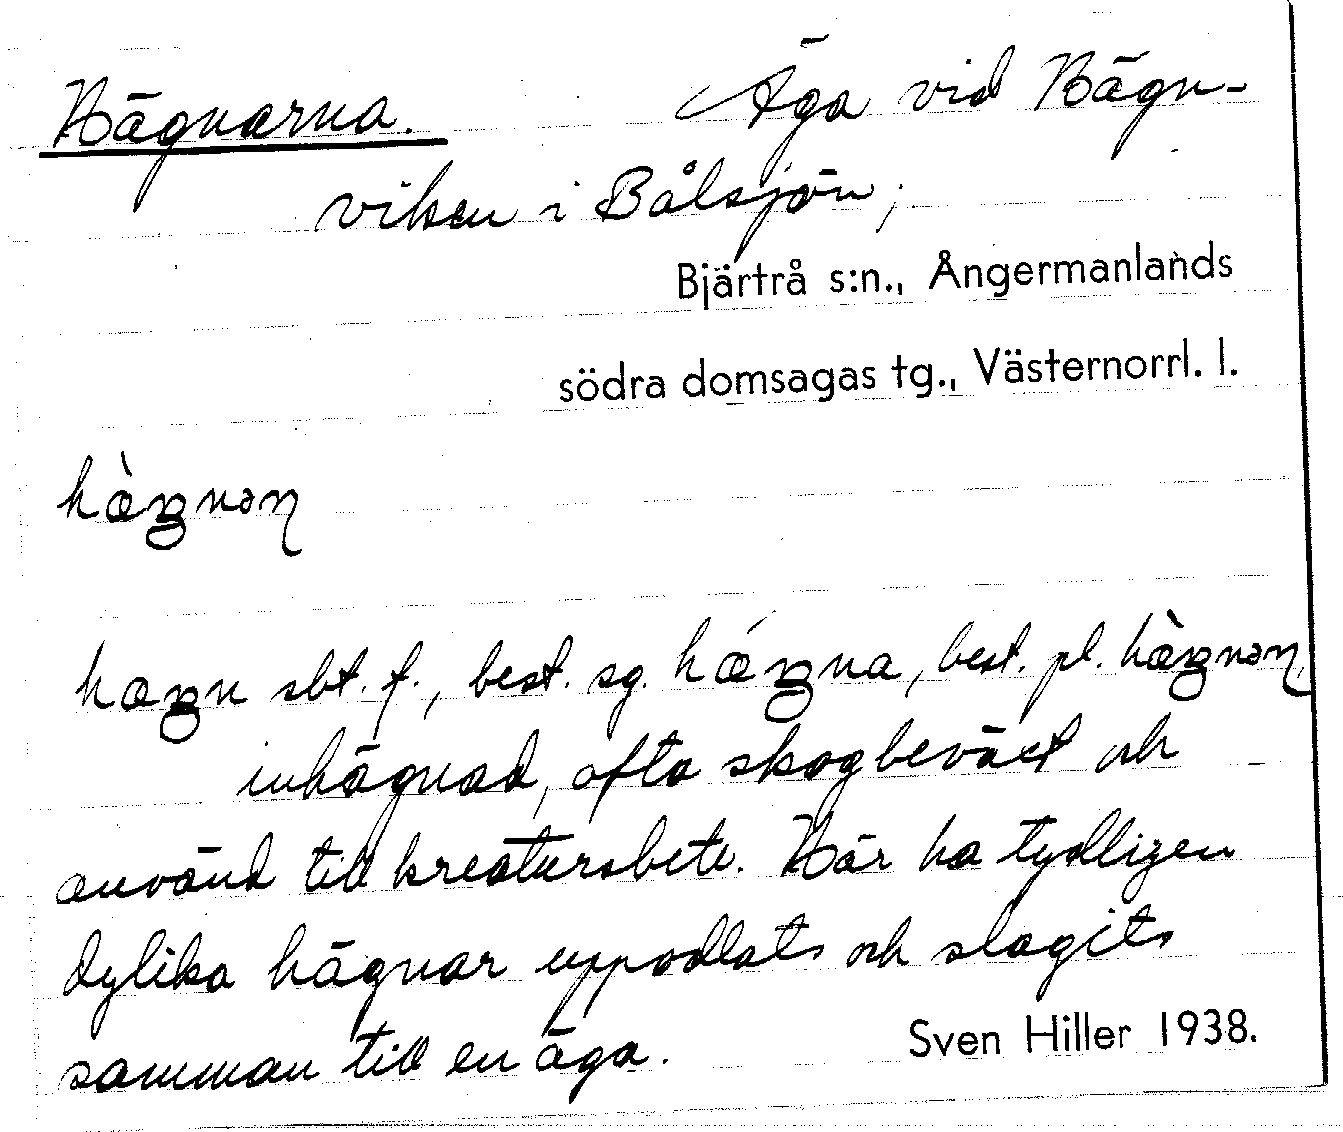 Hägnarna. Äga vid Hägn-
viken i Bålsjön,
Bjärtrå s:n., Ångermanlands
södra domsagas tg., Västernorrl. l.
hægnəɳ
hægn sbt. f., best. sg. hǽgna, best. pl. hæ̀gnəɳ
inhägnad, ofta skogbeväxt och
använd till kreatursbete. Här ha tydligen
dylika hägnar uppodlats och slagits
samman till en äga. Sven Hiller 1938.